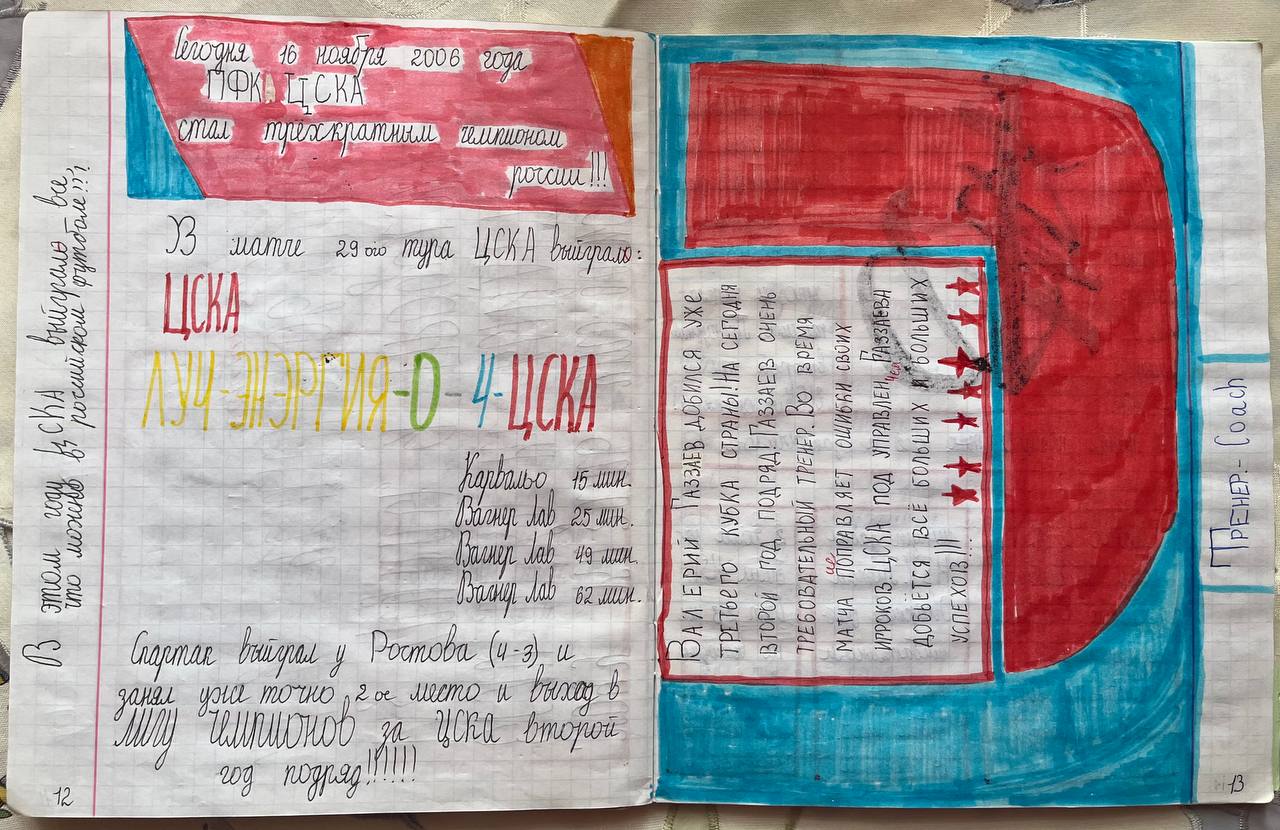 Сегодня 16 ноября 2006 года
ПФК ЦСКА
стал трёхкратным чемпионом
россии!!!
В матче 29ого тура ЦСКА выйграло:
ЦСКА
ЛУЧ-ЭНЭРГИЯ-0-4-ЦСКА
Карвальо 15 мин.
Вагнер Лав 25 мин.
Вагнер Лав 49 мин.
Вагнер Лав 62 мин.
Спартак выйграл у Ростова (4-3) и
занял уже точно 2ое место и выход в
ЛИГУ ЧЕМПИОНОВ за ЦСКА второй
год подряд!!!!!!
12
В этом году ЦСКА выйграло все,
что можно в российском футболе!!!
ВАЛЕРИЙ ГАЗЗАЕВ ДОБИЛСЯ УЖЕ
ТРЕТЬЕГО КУБКА СТРАНЫ! НА СЕГОДНЯ
ВТОРОЙ ГОД ПОДРЯД! ГАЗЗАЕВ ОЧЕНЬ
ТРЕБОВАТЕЛЬНЫЙ ТРЕНЕР. ВО ВРЕМЯ
МАТЧА ПОПРАВЛЯЕТ ОШИБКИ СВОИХ
ИГРОКОВ. ЦСКА ПОД УПРАВЛЕН. ГАЗЗАЕВА
ДОБЬЁТСЯ ВСЁ БОЛЬШИХ И БОЛЬШИХ
УСПЕХОВ!!!
ТРЕНЕР.- Coach
13